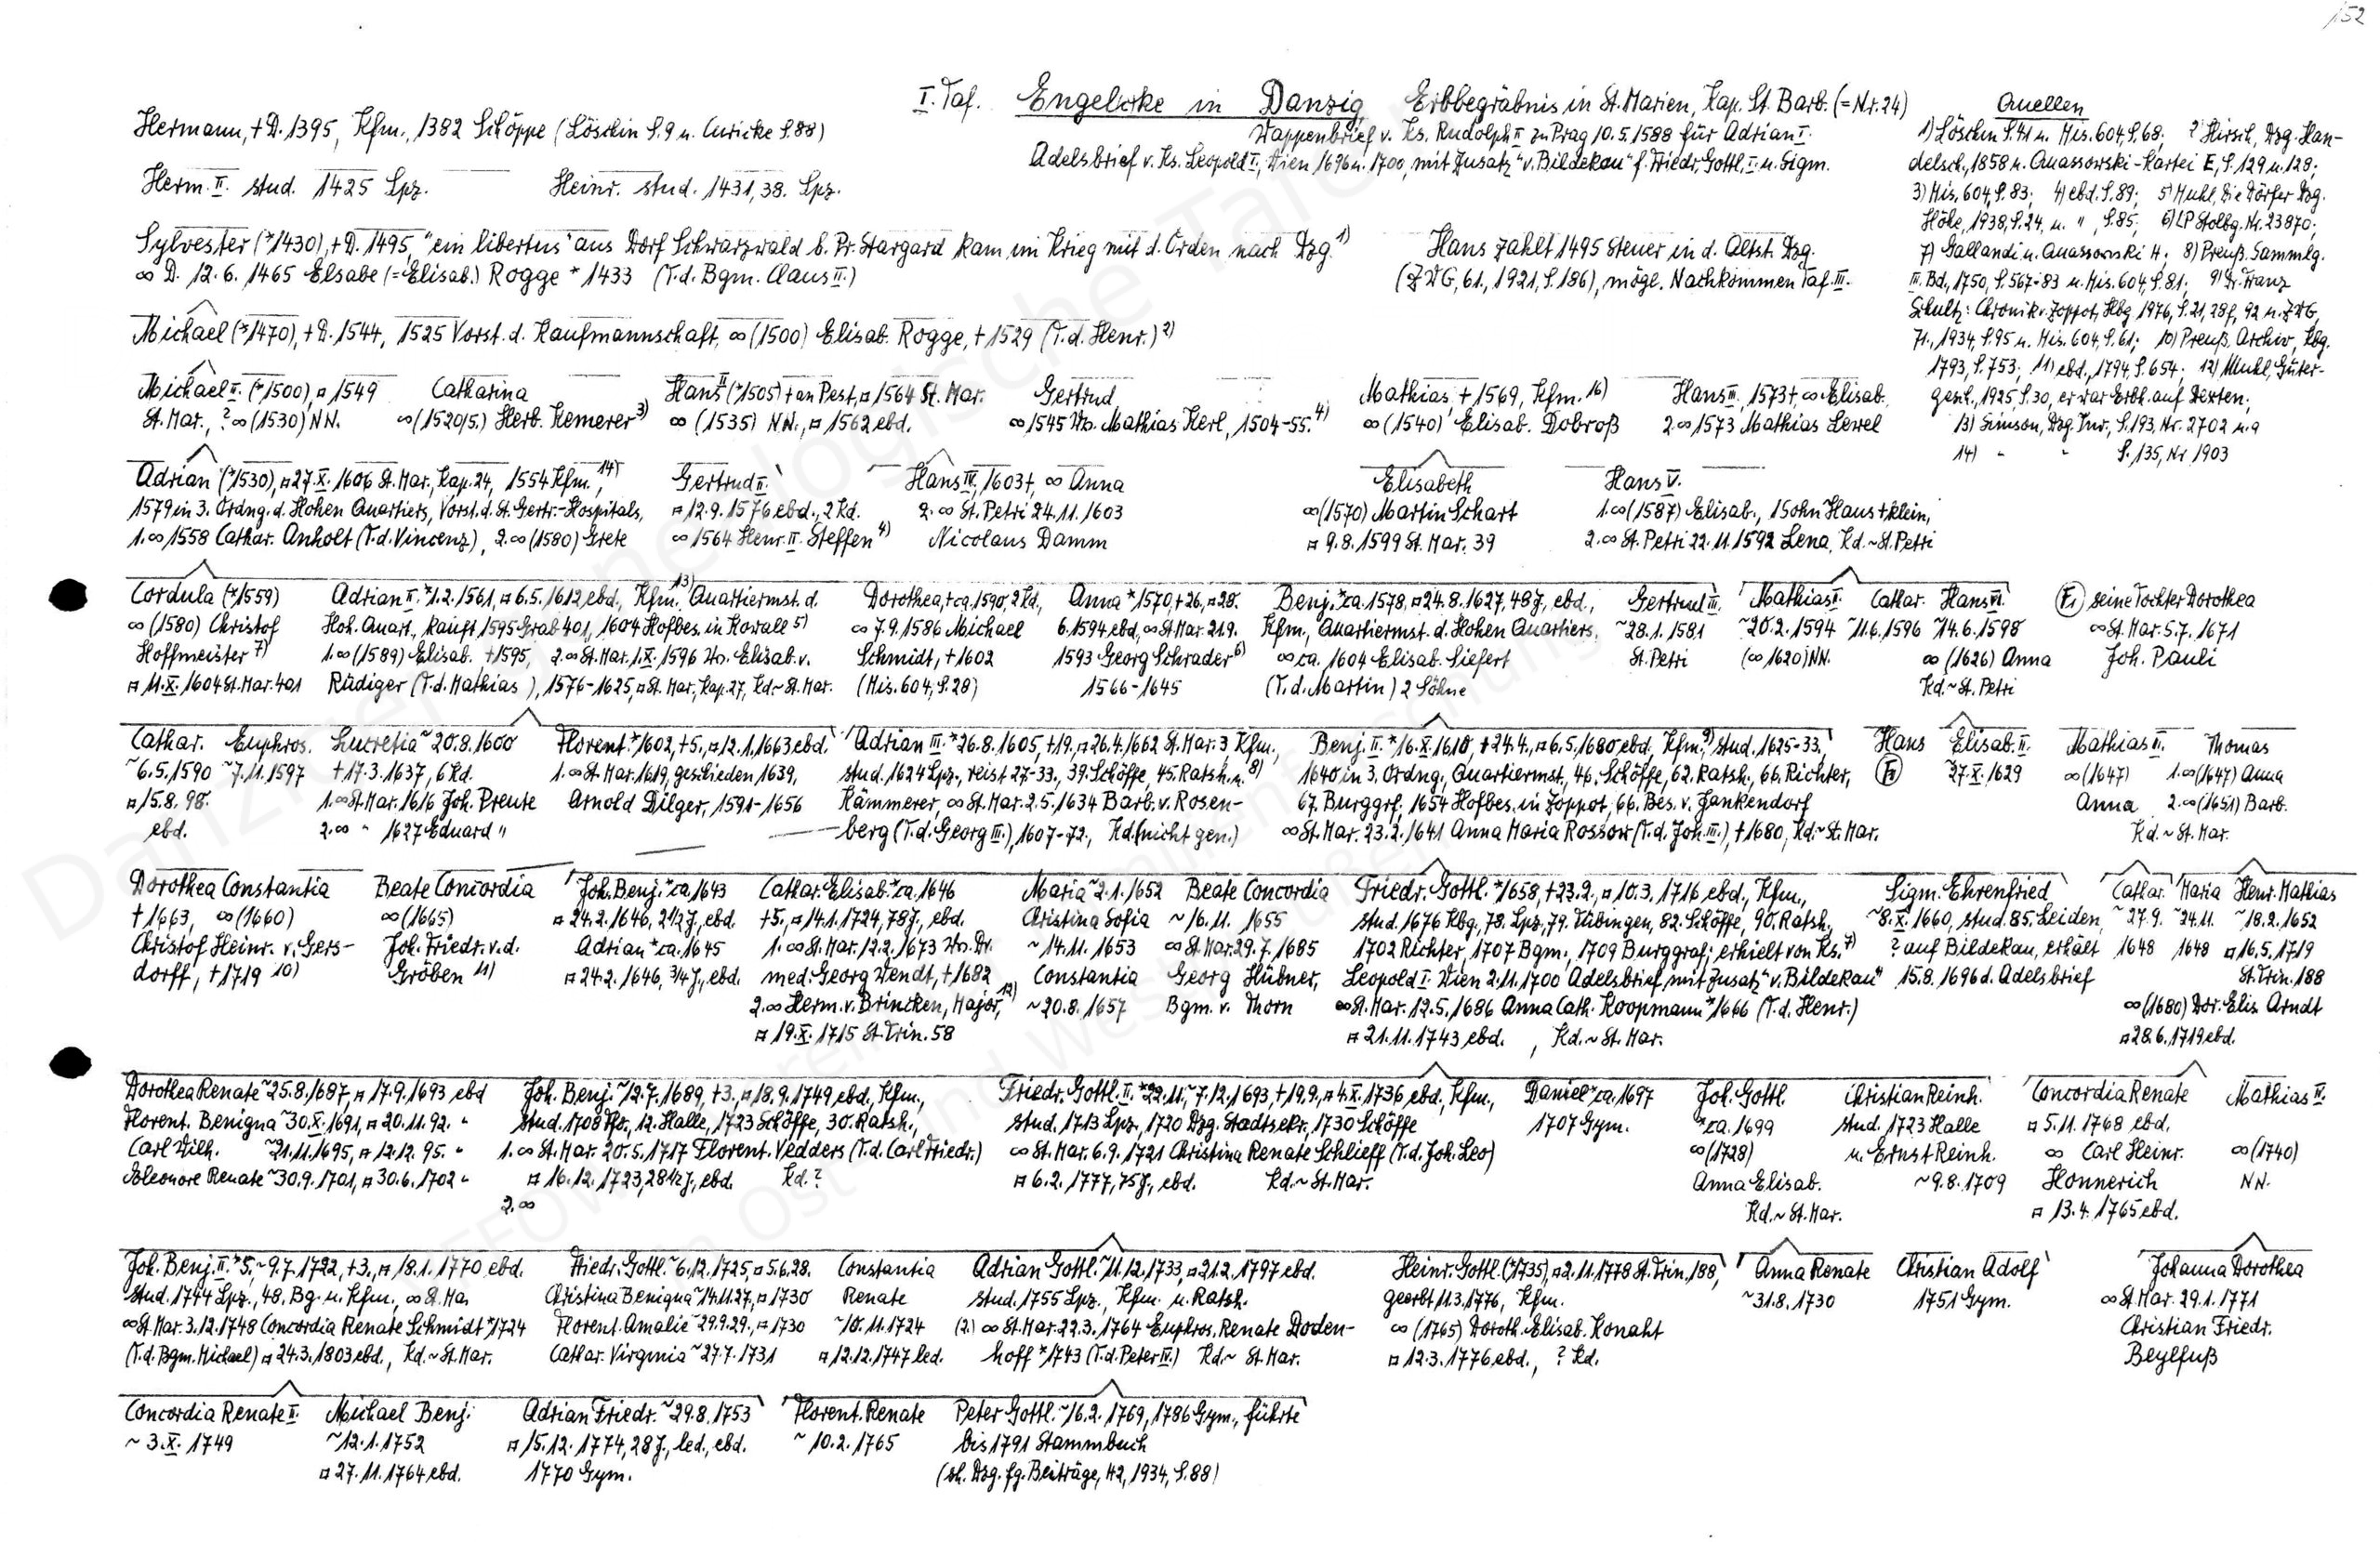 152
I. Taf. Engelcke in Danzig, Erbbegräbnis in St. Marien, Kap. St. Barb. (=Nr. 24)
Wappenbrief v. Ks. Rudolph II zu Prag 10.5.1588 für Adrian I.
Adelsbrief v. Ks. Leopold I, Wien 1696 u. 1700, mit Zusatz "v. Bildekau" f. Friedr. Gottl. I. u. Sigm.
Hermann, + D. 1395, Kfm., 1382 Schöppe (Löschin S. 9 u. Curicke S. 88)
Herm. II. stud. 1425 Lpz. Heinr. stud. 1431, 38. Lpz.
Sylvester (*1430), + D. 1495, "ein libertus" aus Dorf Schwarzwald b. Pr. Stargard kam im Krieg mit d. Orden nach Dzg. 1)
∞ D. 12.6.1465 Elsabe (=Elisab.) Rogge *1433 (T. d. Bgm. Claus II.)
Hans zahlt 1495 Steuer in d. Altst. Dzg.
(ZWG, 61., 1921, S. 186), mögl. Nachkommen Taf. III.
Michael (*1470), + D. 1544, 1525 Vorst. d. Kaufmannschaft, ∞ (1500) Elisab. Rogge, + 1529 (T. d. Henr.) 2)
Quellen
1) Löschin S. 41 u. His. 604, S. 68; 2) Hirsch, Dzg. Han-
delsch., 1858 u. Quassowski-Kartei E, S. 129 u. 128;
3) His. 604, S. 83; 4) ebd. S. 89; 5) Muhl, Die Dörfer Dzg.
Höhe, 1938, S. 24, u. ", S. 85; 6) LP Stolbg. Nr. 23870;
7) Gallandi u. Quassowski 4; 8) Preuß. Sammlg.
III. Bd., 1750, S. 567-83 u. His. 604, S. 81; 9) Dr. Franz
Schultz: Chronik v. Zoppot, Hbg 1976, S. 21, 28f, 92 u. ZWG,
71., 1934, S. 95 u. His. 604, S. 61; 10) Preuß. Archiv, Kbg.
1793, S. 753; 11) ebd., 1794 S. 654; 12) Muhl, Güter-
gesch., 1925, S. 30, er war Erbh. auf Dexten;
13) Simson, Dzg. Inv., S. 193, Nr. 2702 u. a
14) " " S. 135, Nr 1903
Michael II. (*1500), ¤ 1549
St. Mar., ? ∞ (1530) NN.
Catharina
∞ (1520/5.) Herb. Kemerer 3)
Hans II (*1505) + an Pest, ¤ 1564 St. Mar.
∞ (1535) NN., ¤ 1562 ebd.
Gertrud
∞ 1545 Ww. Mathias Kerl, 1504-55. 4)
Mathias, + 1569, Kfm. 16)
∞ (1540) Elisab. Dobroß
Hans III., 1573 + ∞ Elisab.
2. ∞ 1573 Mathias Lewel
Adrian (*1530), ¤ 27.X.1606 St. Mar., Kap. 24, 1554 Kfm., 14)
1579 in 3. Ordng. d. Hohen Quartiers, Vorst. d. St. Gertr.-Hospitals,
1. ∞ 1558 Cathar. Anholt (T. d. Vincenz), 2. ∞ (1580) Grete
Gertrud II.
¤ 12.9.1576 ebd., 2 Kd.
∞ 1564 Henr. II. Steffen 4)
Hans IV., 1603 +, ∞ Anna
2. ∞ St. Petri 24.11.1603
Nicolaus Damm
Elisabeth
∞ (1570) Martin Schart
¤ 9.8.1599 St. Mar. 39
Hans V.
1. ∞ (1587) Elisab., 1 Sohn Hans + klein,
2. ∞ St. Petri 22.11.1592 Lena, Kd. ~ St. Petri
Cordula (*1559)
∞ (1580) Christof
Hoffmeister 7)
¤ 11.X.1604 St. Mar. 401
Adrian II. *1.2.1561, ¤ 6.5.1612 ebd., Kfm., 13) Quartiermst. d.
Hoh. Quart., kauft 1595 Grab 401, 1604 Hofbes. in Kowall 5)
1. ∞ (1589) Elisab. + 1595, 2. ∞ St. Mar. 1.X.1596 Ww. Elisab. v.
Rüdiger (T. d. Mathias ), 1576-1625, ¤ St. Mar., Kap. 27, Kd ~ St. Mar.
Dorothea, + ca. 1590, 2 Kd.,
∞ 7.9.1586 Michael
Schmidt, + 1602
(His. 604, S. 28)
Anna *1570, + 26., ¤ 28.
6.1594 ebd., ∞ St. Mar. 21.9.
1593 Georg Schrader 6)
1566-1645
Benj. *ca. 1578, ¤ 24.8.1627, 48 J., ebd.,
Kfm., Quartiermst. d. Hohen Quartiers,
∞ ca. 1604 Elisab. Siefert
(T. d. Martin) 2 Söhne
Gertrud III.
~28.1.1581
St. Petri
Mathias I.
~20.2.1594
(∞ 1620) NN.
Cathar.
~11.6.1596
Hans VI.
~14.6.1598
∞ (1626) Anna
Kd. ~ St. Petri
F1) seine Tochter Dorothea
∞ St. Mar. 5.7.1671
Joh. Pauli
Cathar.
~6.5.1590
¤ 15.8.98.
ebd.
Euphros.
~7.11.1597
Lucretia ~20.8.1600
+ 17.3.1637, 6 Kd.
1. ∞ St. Mar. 1616 Joh. Preute
2. ∞ " 1627 Eduard "
Florent. *1602, + 5., ¤ 12.1.1663 ebd.
1. ∞ St. Mar. 1619, geschieden 1639,
Arnold Dilger, 1591-1656
Adrian III. *26.8.1605, + 19., ¤ 26.4.1662 St. Mar. 3 Kfm.,
stud. 1624 Lpz., reist 27-33., 39. Schöffe, 45. Ratsh. u. 8)
Kämmerer, ∞ St. Mar. 2.5.1634 Barb. v. Rosen-
berg (T. d. Georg III.), 1607-72, Kd. (nicht gen.)
Benj. II. *16.X.1610, + 24.4., ¤ 6.5.1680 ebd., Kfm. 9), stud. 1625-33,
1640 in 3. Ordng., Quartiermst., 46. Schöffe, 62. Ratsh., 66. Richter,
67. Burggrf., 1654 Hofbes. in Zoppot, 66. Bes. v. Jankendorf
∞ St. Mar. 23.2.1641 Anna Maria Rossow (T. d. Joh. III.), + 1680, Kd. ~ St. Mar.
Hans
F1
Elisab. II.
27.X.1629
Mathias II.
∞ (1647)
Anna
Thomas
1. ∞ (1647) Anna
2. ∞ (1651) Barb.
Kd. ~ St. Mar.
Dorothea Constantia
+ 1663, ∞ (1660)
Christof Heinr. v. Gers-
dorff, + 1719 10)
Beate Concordia
∞ (1665)
Joh. Friedr. v. d.
Gröben 11)
Joh. Benj. *ca. 1643
¤ 24.2.1646, 2 1/2 J., ebd.
Adrian *ca. 1645
¤ 24.2.1646, 3/4 J., ebd.
Cathar. Elisab. *ca. 1646
+ 5., ¤ 14.1.1724, 78 J., ebd.
1. ∞ St. Mar. 12.2.1673 Ww. Dr.
med. Georg Wendt, + 1682
2. ∞ Herm. v. Brincken, Major, 12)
¤ 19.X.1715 St. Trin. 58
Maria ~2.1.1652
Christina Sofia
~14.11.1653
Constantia
~20.8.1657
Beate Concordia
~16.11.1655
∞ St. Mar. 29.7.1685
Georg Hübner,
Bgm. v. Thorn
Friedr. Gottl. *1658, + 23.2., ¤ 10.3.1716 ebd., Kfm.,
stud. 1676 Kbg., 78. Lpz., 79. Tübingen, 82. Schöffe, 90. Ratsh.,
1702 Richter, 1707 Bgm., 1709 Burggraf; erhielt von Ks. 7)
Leopold I. Wien 2.11.1700 Adelsbrief mit Zusatz "v. Bildekau"
∞ St. Mar. 12.5.1686 Anna Cath. Koopmann *1666 (T. d. Henr.)
¤ 21.11.1743 ebd. , Kd. ~ St. Mar.
Sigm. Ehrenfried
~8.X.1660, stud. 85. Leiden,
? auf Bildekau, erhält
15.8.1696 d. Adelsbrief
Cathar.
~27.9.
1648
Maria
~24.11.
1648
Henr. Mathias
~18.2.1652
¤ 16.5.1719
St. Trin. 188
∞ (1680) Dor. Elis. Arndt
¤ 28.6.1719 ebd.
Dorothea Renate ~25.8.1687, ¤ 17.9.1693 ebd
Florent. Benigna ~30.X.1691, ¤ 20.11.92. "
Carl Wilh. ~21.11.1695, ¤ 12.12.95. "
Eleonore Renate ~30.9.1701, ¤ 30.6.1702 "
Joh. Benj. ~12.7.1689, + 3., ¤ 18.9.1749 ebd., Kfm.,
stud. 1708 Ffo., 12. Halle, 1723 Schöffe, 30. Ratsh.,
1. ∞ St. Mar. 20.5.1717 Florent. Vedders (T. d. Carl Friedr.)
¤ 16.12.1723, 28 1/2 J., ebd. Kd. ?
2. ∞
Friedr. Gottl. II. *22.11., ~7.12.1693, + 19.9., ¤ 4.X.1736 ebd., Kfm.,
stud. 1713 Lpz., 1720 Dzg. Stadtsekr., 1730 Schöffe
∞ St. Mar. 6.9.1721 Christina Renate Schlieff (T. d. Joh. Leo)
¤ 6.2.1777, 75 J., ebd. Kd. ~ St. Mar.
Daniel *ca. 1697
1707 Gym.
Joh. Gottl.
*ca. 1699
∞ (1728)
Anna Elisab.
Kd. ~ St. Mar.
Christian Reinh.
stud. 1723 Halle
u. Ernst Reinh.
~9.8.1709
Concordia Renate
¤ 5.11.1768 ebd.
∞ Carl Heinr.
Honnerich
¤ 13.4.1765 ebd.
Mathias II.
∞ (1740)
NN.
Joh. Benj. II. *5., ~9.7.1722, + 3., ¤ 18.1.1770 ebd.
stud. 1744 Lpz., 48. Bg. u. Kfm., ∞ St. Ma
∞ St. Mar. 3.12.1748 Concordia Renate Schmidt *1724
(T. d. Bgm. Michael) ¤ 24.3.1803 ebd., Kd. ~ St. Mar.
Friedr. Gottl. ~6.12.1725, ¤ 5.6.28.
Christina Benigna ~14.11.27, ¤ 1730
Florent. Amalie ~29.9.29., ¤ 1730
Cathar. Virginia ~27.7.1731
Constantia
Renate
~10.11.1724
¤ 12.12.1747 led.
Adrian Gottl. ~11.12.1733, ¤ 21.2.1797 ebd.
stud. 1755 Lpz., Kfm. u. Ratsh.
(2.) ∞ St. Mar. 22.3.1764 Euphros. Renate Doden-
hoff *1743 (T. d. Peter IV.) Kd. ~ St. Mar.
Heinr. Gottl. (*1735), ¤ 2.11.1778 St. Trin. 188,
geerbt 11.3.1776, Kfm.
∞ (1765) Doroth. Elisab. Konaht
¤ 12.3.1776 ebd., ? Kd.
Anna Renate
~31.8.1730
Christian Adolf
1751 Gym.
Johanna Dorothea
∞ St. Mar. 29.1.1771
Christian Friedr.
Beylfuß
Concordia Renate II.
~3.X.1749
Michael Benj.
~12.1.1752
¤ 27.11.1764 ebd.
Adrian Friedr. ~29.8.1753
¤ 15.12.1774, 28 J., led., ebd.
1770 Gym.
Florent. Renate
~10.2.1765
Peter Gottl. ~16.2.1769, 1786 Gym., führte
bis 1791 Stammbuch
(sh. Dzg. fg. Beiträge, H2, 1934, S. 88)